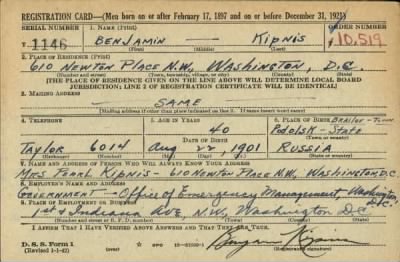 REGISTRATION CARD—(Men born on or after February 17, 1897 and on or before December 31, 1921)
SERIAL NUMBER 1. NAME (Print) ORDER NUMBER
1146 BENJAMIN — KIPNIS 10,519
(First) (Middle) (Last)
2. PLACE OF RESIDENCE (Print)
610 NEWTON PLACE N.W., WASHINGTON, D.C.
(Number and street) (Town, township, village, or city) (County) (State)
[THE PLACE OF RESIDENCE GIVEN ON THE LINE ABOVE WILL DETERMINE LOCAL BOARD
JURISDICTION; LINE 2 OF REGISTRATION CERTIFICATE WILL BE IDENTICAL]
3. MAILING ADDRESS
SAME
[Mailing address if other than place indicated on line 2. If same insert word same]
4. TELEPHONE 5. AGE IN YEARS 6. PLACE OF BIRTH
40 Podolsk - State
DATE OF BIRTH
TAYLOR 6014 Aug 22 1901 RUSSIA
7. NAME AND ADDRESS OF PERSON WHO WILL ALWAYS KNOW YOUR ADDRESS
MRS Pearl Kipnis - 610 Newton Place N.W., Washington, D.C.
8. EMPLOYER'S NAME AND ADDRESS
Government - Office of Emergency Management Washington, D.C.
9. PLACE OF EMPLOYMENT OR BUSINESS
1st & Indiana Ave, N.W. Washington D.C.
(Number and street or R. F. D. number) (Town) (County) (State)
I AFFIRM THAT I HAVE VERIFIED ABOVE ANSWERS AND THAT THEY ARE TRUE.
D. S. S. Form 1
(Revised 1-1-42) GPO Benjamin Kipnis